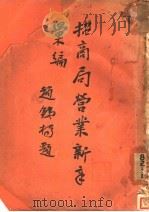 招商局營業新章
彙編
趙鉄橋題